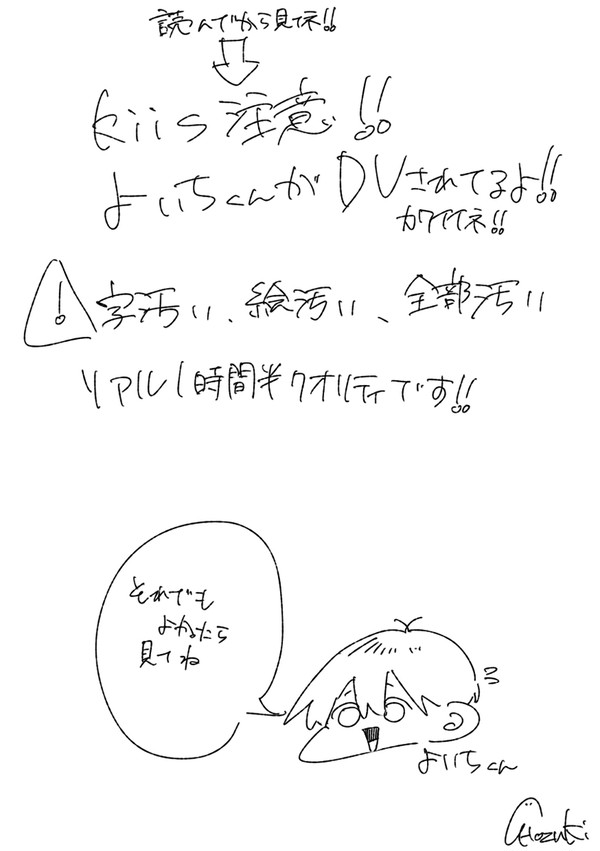 読んでから見てネ!!
kiis注意!!
よいちくんがDVされてるよ!!
カワイイネ!!
字汚い、絵汚い、全部汚い
リアル1時間半クオリティです!!
それでも
よかったら
見てね
よいちくん